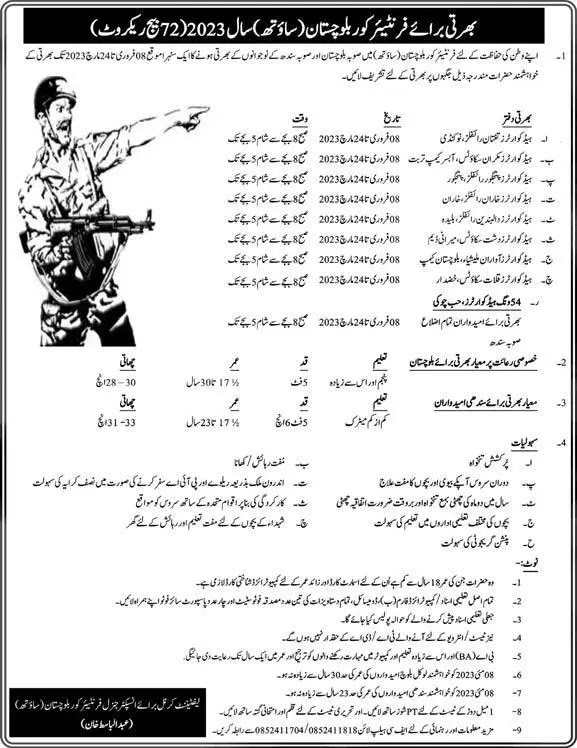 بھرتی برائے فرنٹیئر کور بلوچستان (ساؤتھ) سال 2023 (72 بیچ ریکروٹ)
1۔ اپنے وطن کی حفاظت کے لئے فرنٹیئر کور بلوچستان (ساؤتھ) میں صوبہ بلوچستان اور صوبہ سندھ کے نوجوانوں کے بھرتی ہونے کا ایک سنہرا موقع 08 فروری تا 24 مارچ 2023 تک بھرتی کے
خواہشمند حضرات مندرجہ ذیل جگہوں پر بھرتی کے لئے تشریف لائیں۔
بھرتی دفتر تاریخ وقت
ا۔ ہیڈ کوارٹرز تفتان رائفلز، نوکنڈی 08 فروری تا 24 مارچ 2023 صبح 8 بجے سے شام 5 بجے تک
ب۔ ہیڈ کوارٹرز مکران سکاؤٹس، آبسر کیمپ تربت 08 فروری تا 24 مارچ 2023 صبح 8 بجے سے شام 5 بجے تک
پ۔ ہیڈ کوارٹرز پنجگور رائفلز، پنجگور 08 فروری تا 24 مارچ 2023 صبح 8 بجے سے شام 5 بجے تک
ت۔ ہیڈ کوارٹرز خاران رائفلز، خاران 08 فروری تا 24 مارچ 2023 صبح 8 بجے سے شام 5 بجے تک
ٹ۔ ہیڈ کوارٹرز دالبندین رائفلز، بلیدہ 08 فروری تا 24 مارچ 2023 صبح 8 بجے سے شام 5 بجے تک
ث۔ ہیڈ کوارٹرز دشت سکاؤٹس، میرانی ڈیم 08 فروری تا 24 مارچ 2023 صبح 8 بجے سے شام 5 بجے تک
ج۔ ہیڈ کوارٹرز آواران ملیشیاء، بلوچستان کیمپ 08 فروری تا 24 مارچ 2023 صبح 8 بجے سے شام 5 بجے تک
چ۔ ہیڈ کوارٹرز قلات سکاؤٹس، خضدار 08 فروری تا 24 مارچ 2023 صبح 8 بجے سے شام 5 بجے تک
ر۔ 54 ونگ ہیڈ کوارٹرز، حب چوکی
بھرتی برائے امیدواران تمام اضلاع 08 فروری تا 24 مارچ 2023 صبح 8 بجے سے شام 5 بجے تک
صوبہ سندھ
2۔ خصوصی رعائت پر معیار بھرتی برائے بلوچستان تعلیم قد عمر چھاتی
پنجم اور اس سے زیادہ 5 فٹ 17 ½ تا 30 سال 30 – 28 انچ
3۔ معیار بھرتی برائے سندھی امیدواران تعلیم قد عمر چھاتی
کم از کم میٹرک 5 فٹ 6 انچ 17 ½ تا 23 سال 33 – 31 انچ
4۔ سہولیات
ا۔ پُر کشش تنخواہ ب۔ مفت رہائش / کھانا
پ۔ دوران سروس آپکے بیوی اور بچوں کا مفت علاج ت۔ اندرون ملک بذریعہ ریلوے اور پی آئی اے سفر کرنے کی صورت میں نصف کرایہ کی سہولت
ٹ۔ سال میں دو ماہ کی چھٹی بمع تنخواہ اور بروقت ضرورت اتفاقیہ چھٹی ث۔ کارکردگی کی بناء پر اقوام متحدہ کے ساتھ سروس کو مواقع
ج۔ بچوں کی مختلف تعلیمی اداروں میں تعلیم کی سہولت چ۔ شہداء کے بچوں کے لئے مفت تعلیم اور رہائش کے لئے گھر
ح۔ پنشن گریجوٹی کی سہولت
نوٹ:-
1۔ وہ حضرات جن کی عمر 18 سال سے کم ہے اُن کے لئے اسمارٹ کارڈ اور زائد عمر کے لئے کمپیوٹرائزڈ شناختی کارڈ لازمی ہے۔
2۔ تمام اصل تعلیمی اسناد / کمپیوٹرائزڈ فارم (ب)، ڈومیسائل، تمام دستاویزات کی تین عدد مصدقہ فوٹو سٹیٹ اور چار عدد پاسپورٹ سائز فوٹو اپنے ہمراہ لائیں۔
3۔ جعلی تعلیمی اسناد پیش کرنے والے کو حوالہ پولیس کیا جائے گا۔
4۔ نیز ٹیسٹ / انٹرویو کے لئے آنے والے ٹی اے / ڈی اے کے حقدار نہیں ہوں گے۔
5۔ بی اے (BA) اور اس سے زیادہ تعلیم اور کمپیوٹر میں مہارت رکھنے والوں کو ترجیح اور عمر میں ایک سال تک رعایت دی جائیگی۔
6۔ 08 مئی 2023 کو خواہشمند لوکل بلوچ امیدواروں کی عمر کی حد 30 سال سے زیادہ نہ ہو۔
7۔ 08 مئی 2023 کو خواہشمند سندھی امیدواروں کی عمر کی حد 23 سال سے زیادہ نہ ہو۔
8۔ 1 میل دوڑ کے ٹیسٹ کے لئے PT شوز ساتھ لائیں۔ اور تحریری ٹیسٹ کے لئے قلم اور امتحانی گتہ ساتھ لائیں۔
9۔ مزید معلومات اور رہنمائی کے لئے ایف سی ہیلپ لائن 0852411704 / 0852411818 سے رابطہ کریں۔
لیفٹیننٹ کرنل برائے انسپکٹر جنرل فرنٹیئر کور بلوچستان (ساؤتھ)
(عبدالباسط خان)